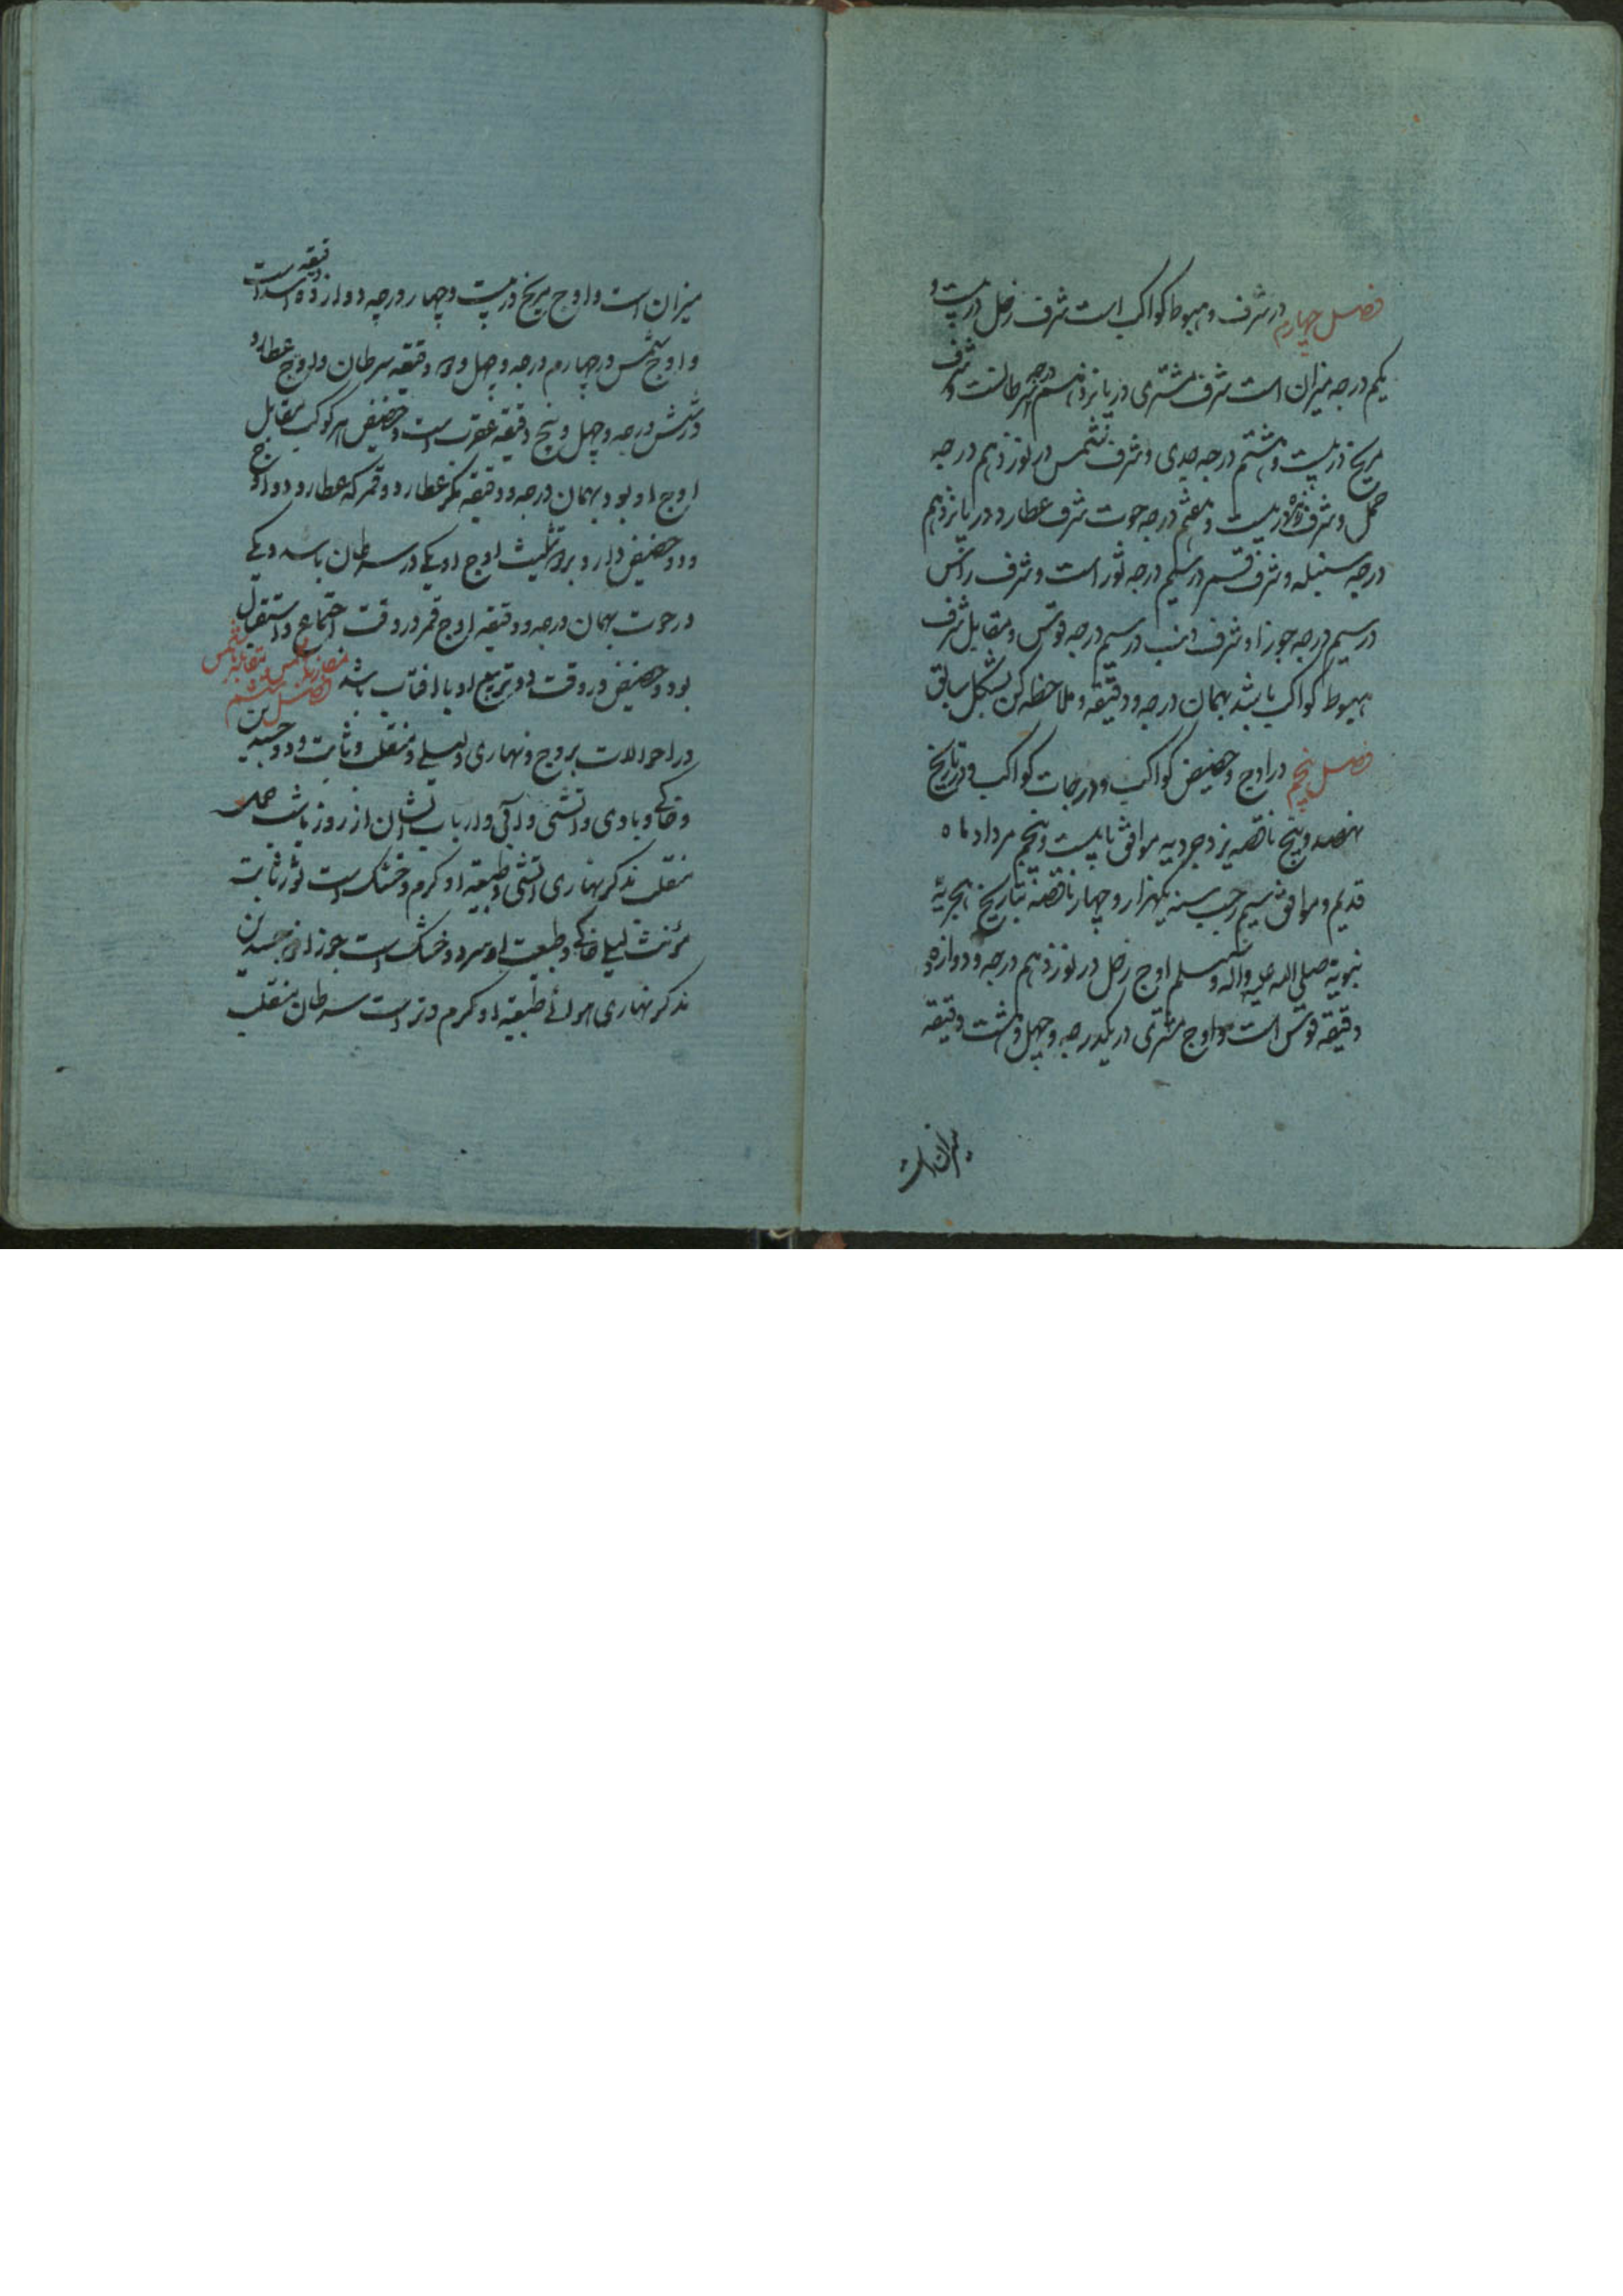 فصل چهارم در شرف و هبوط کواکب است شرف زحل در بیست و
یکم درجه میزان است شرف مشتری در پانزدهم درجه سرطانست و شرف
مریخ در بیست و هشتم درجه جدی و شرف شمس در نوزدهم درجه
حمل و شرف زهره در بیست و هفتم درجه حوت شرف عطارد در پانزدهم
درجه سنبله و شرف قمر در سیم درجه ثور است و شرف راس
در سیم درجه جوزا و شرف ذنب در سیم درجه قوس و مقابل شرف
هبوط کواکب باشد بهمان درجه و دقیقه و ملاحظه کن بشکل سابق
فصل پنجم در اوج و حضیض کواکب و درجات کواکب و در تاریخ
نهصد و پنج ناقصه یزدجردیه موافق با بیست و پنجم مرداد ماه
قدیم و موافق سیم رجب سنه یکهزار و چهار ناقصه بتاریخ هجریه
نبویه صلی الله علیه واله وسلم اوج زحل در نوزدهم درجه و دوازده
دقیقه قوس است و اوج مشتری در یکدرجه و چهل و هشت دقیقه
میزان است
میزان است و اوج مریخ در بیست و چهار درجه دوازده دقیقه اسد است
و اوج شمس در چهارم درجه و چهل و دقیقه سرطان و اوج عطارد
در شش درجه و چهل و پنج دقیقه عقرب است و حضیض هر کوکب مقابل
اوج او بود بهمان درجه و دقیقه مگر عطارد و قمر که عطارد دو اوج
و دو حضیض دارد بر تثلیث اوج او یکے در سرطان باشد و یکے
در حوت بهمان درجه و دقیقه اوج قمر در وقت اجتماع و استقبال
بود و حضیض در وقت دو تربیع او با افتاب باشد فصل ششم
در احوالات بروج و نهاری و لیلے و منقلب و ثابت و ذو جسدین
و خاکے و بادی و اتشی و ابی و ارباب ایشان از روز باشب حمل
منقلب مذکر نهاری اتشی و طبیعه او کرم و خشک است ثور ثابت
مؤنث لیلے خاکے و طبیعت او سرد و خشک است جوزا ذو جسدین
مذکر نهاری هوائے طبیعه او کرم و تر است سرطان منقلب